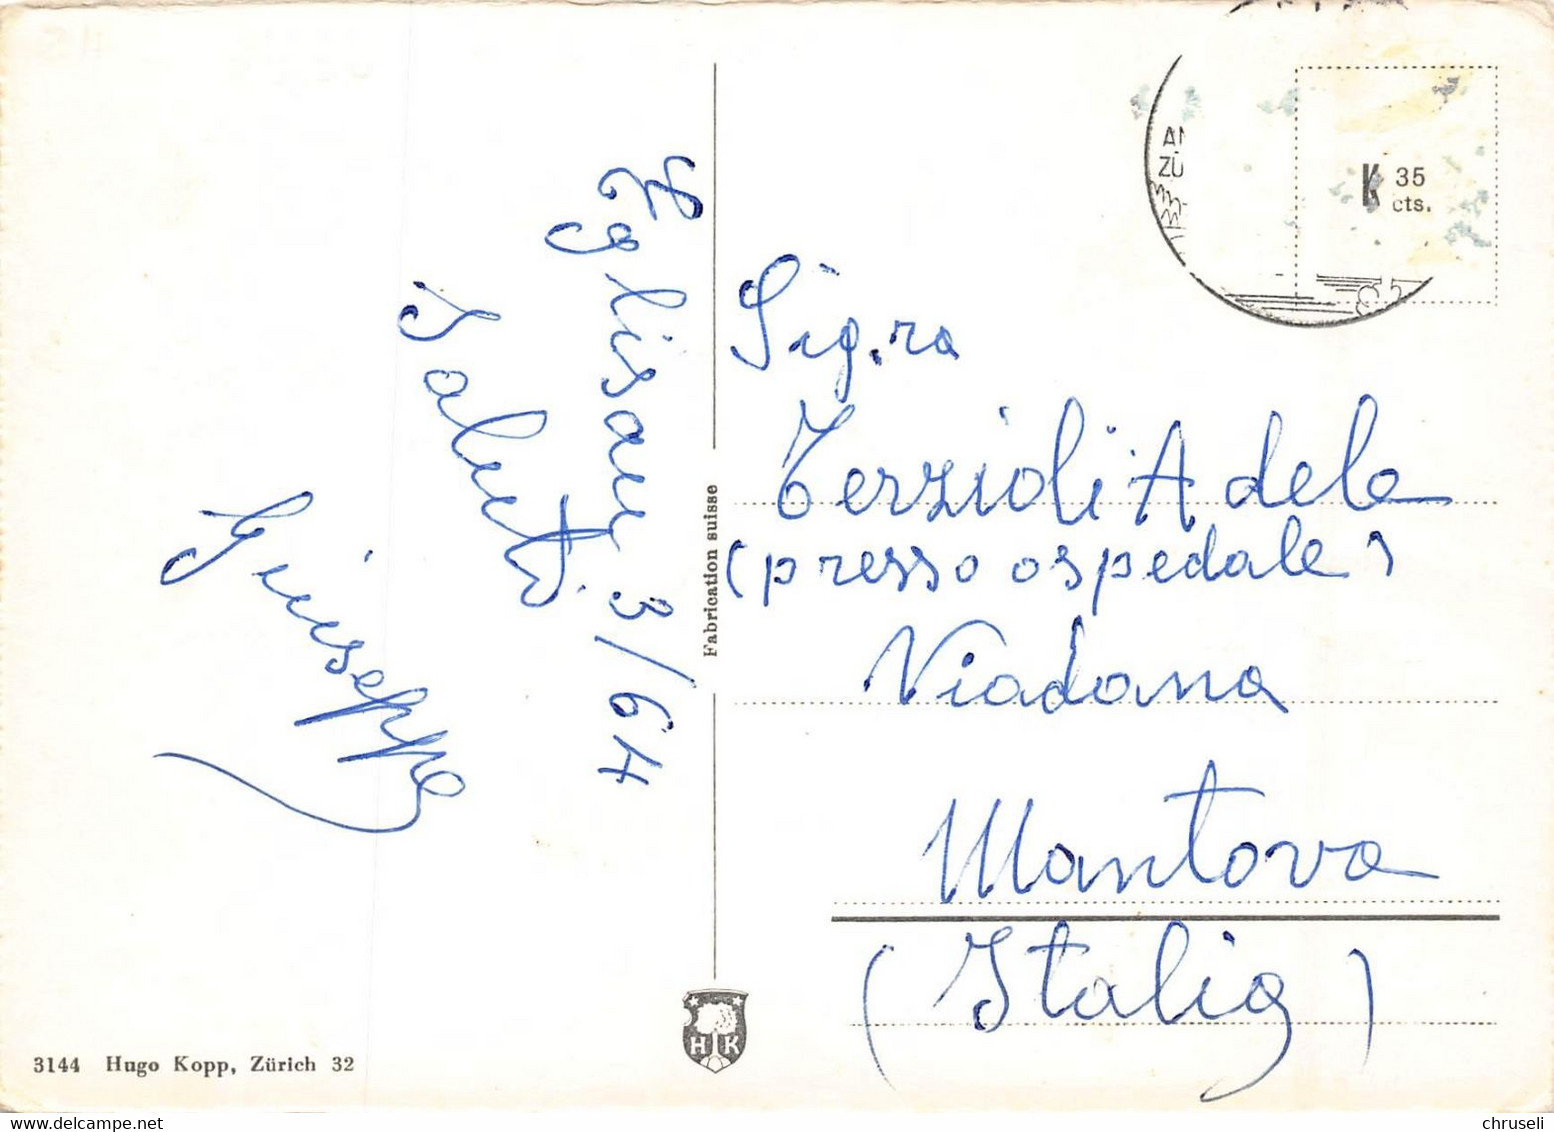 Eglisau 3/64
Saluti
Giuseppe
Fabrication suisse
3144 Hugo Kopp, Zürich 32
HK
K 35
cts.
Sig.ra
Terzioli Adele
(presso ospedale)
Viadana
Mantova
(Italia)
chruseli